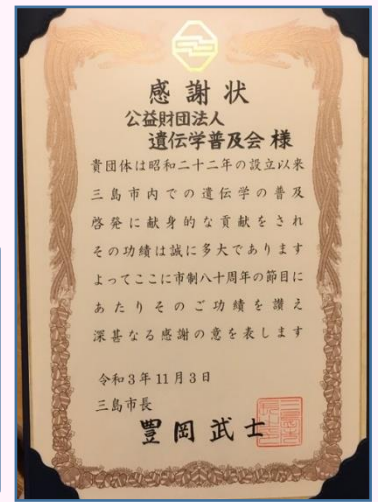 感謝状
公益財団法人
遺伝学普及会 様
貴団体は昭和二十二年の設立以来
三島市内での遺伝学の普及
啓発に献身的な貢献をされ
その功績は誠に多大であります
よってここに市制八十周年の節目に
あたりそのご功績を讃え
深甚なる感謝の意を表します
令和3年11月3日
三島市長
豊岡武士